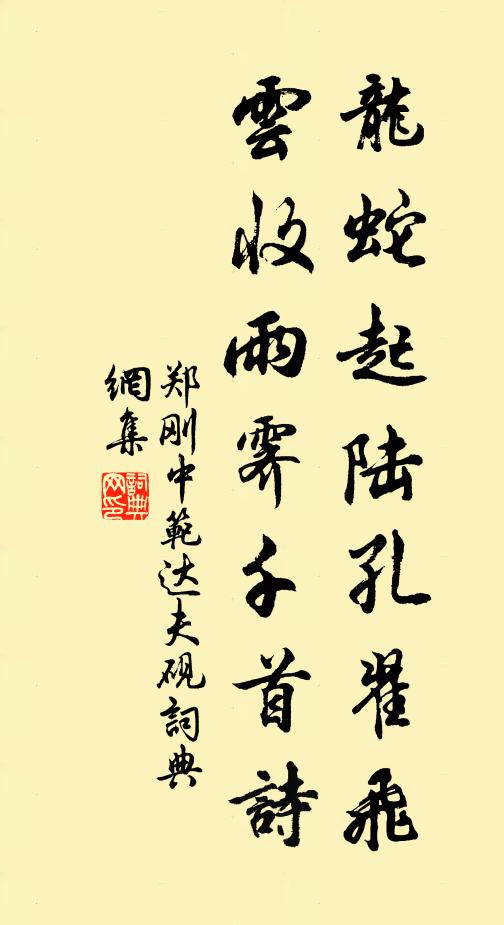 龍蛇起陆孔翟飛
雲收雨霁千首詩
郑刚中範达夫砚詞典
網集
詞典
网印